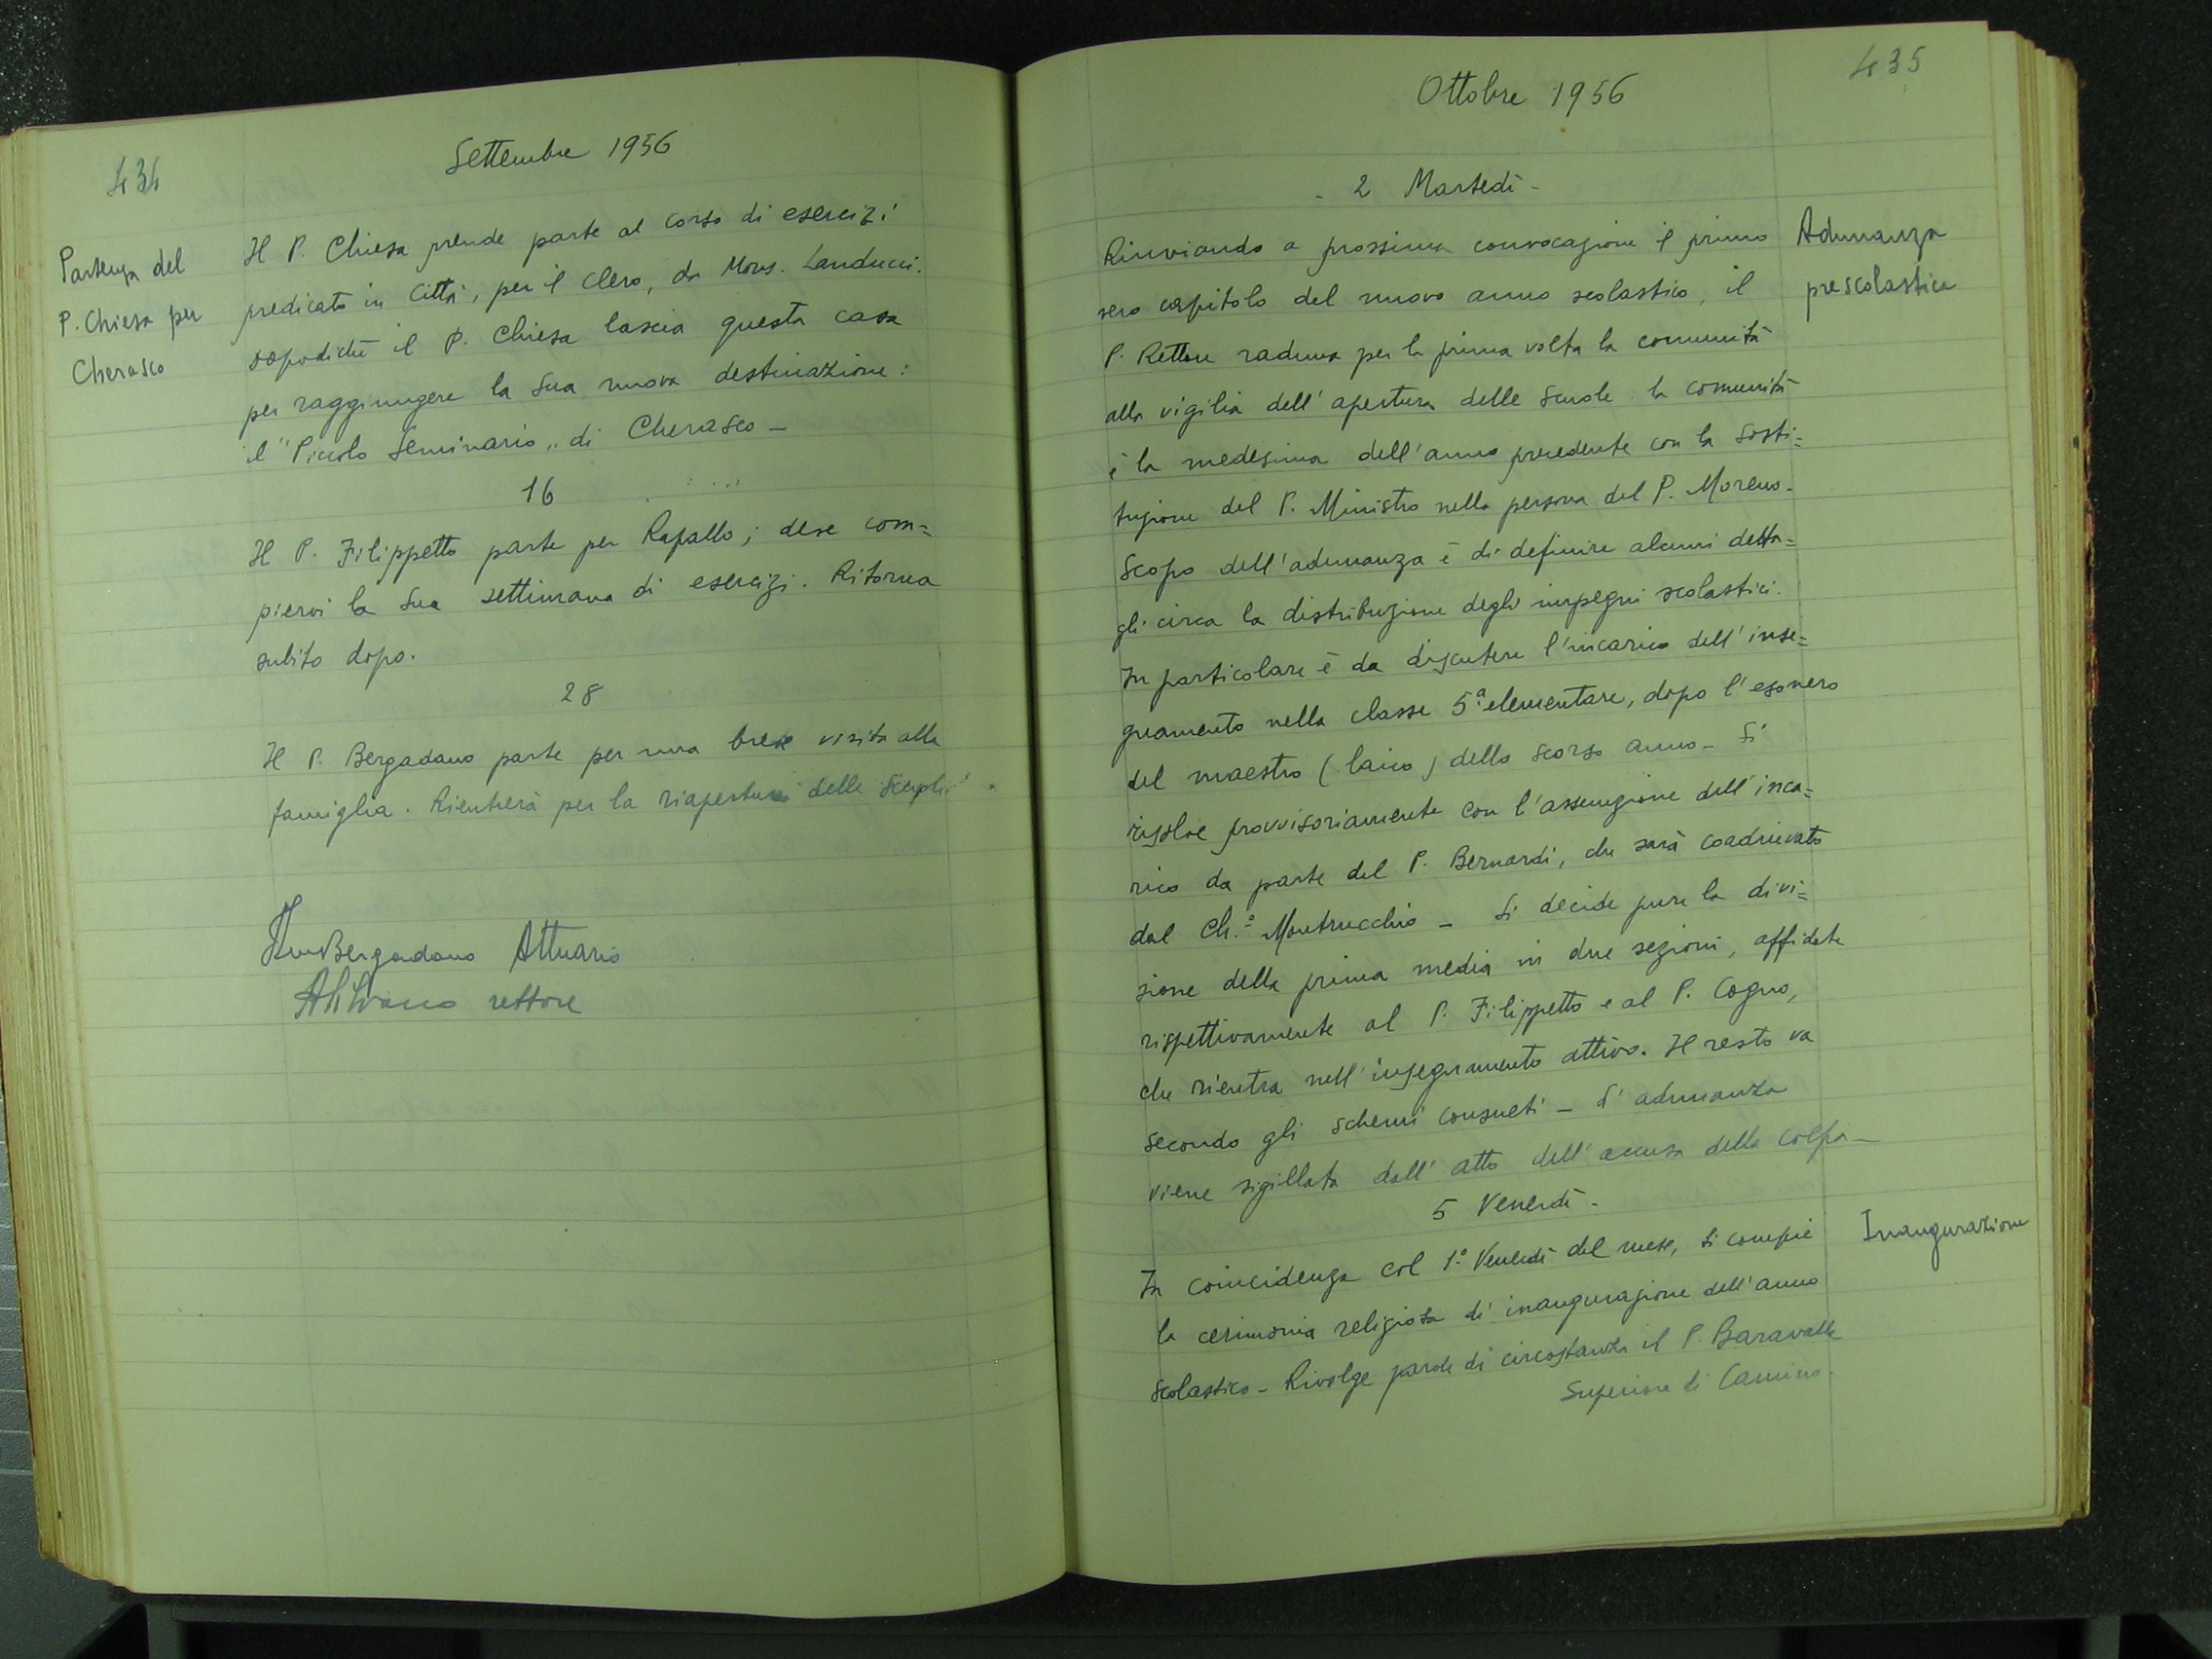 434
Settembre 1956
Partenza del
P. Chiesa per
Cherasco
Il P. Chiesa prende parte al corso di esercizi
predicato in Città, per il Clero, da Mons. Landucci.
dopodiché il P. Chiesa lascia questa casa
per raggiungere la sua nuova destinazione:
il "Piccolo Seminario" di Cherasco -
16
Il P. Filippetto parte per Rapallo; deve com=
piervi la sua settimana di esercizi. Ritorna
subito dopo.
28
Il P. Bergadano parte per una breve visita alla
famiglia. Rientrerà per la riapertura delle Scuole.
Bergadano Attuario
rettore
435
Ottobre 1956
- 2 Martedì -
Adunanza
prescolastica
Rinviando a prossima convocazione il primo
vero capitolo del nuovo anno scolastico, il
P. Rettore raduna per la prima volta la comunità
alla vigilia dell'apertura delle Scuole: la comunità
è la medesima dell'anno precedente con la sosti=
tuzione del P. Ministro nella persona del P. Moreno.
Scopo dell'adunanza è di definire alcuni detta=
gli circa la distribuzione degli impegni scolastici.
In particolare è da discutere l'incarico dell'inse=
gnamento nella classe 5ª elementare, dopo l'esonero
del maestro (laico) dello scorso anno - Si
risolve provvisoriamente con l'assunzione dell'inca=
rico da parte del P. Bernardi, che sarà coadiuvato
dal Ch.º Montrucchio - Si decide pure la divi=
sione della prima media in due sezioni, affidate
rispettivamente al P. Filippetto e al P. Cogno,
che rientra nell'insegnamento attivo. Il resto va
secondo gli schemi consueti - L'adunanza
viene sigillata dall'atto dell'accusa della colpa -
5 Venerdì -
Inaugurazione
In coincidenza col 1º Venerdì del mese, si compie
la cerimonia religiosa di inaugurazione dell'anno
scolastico - Rivolge parole di circostanza il P. Baravalle
Superiore di Camino.